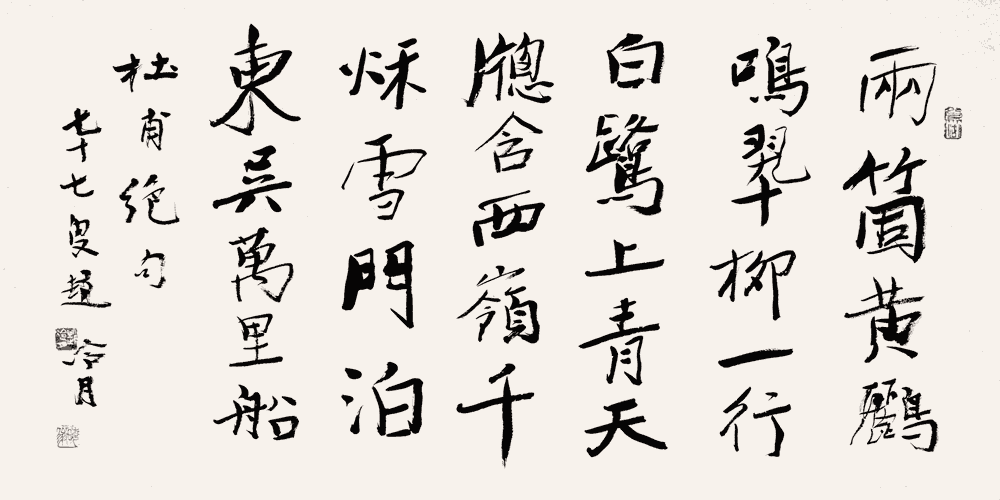 兩箇黃鸝
鳴翠柳一行
白鷺上青天
牕含西嶺千
秌雪門泊
東吳萬里船
杜甫絕句
七十七叟趙冷月